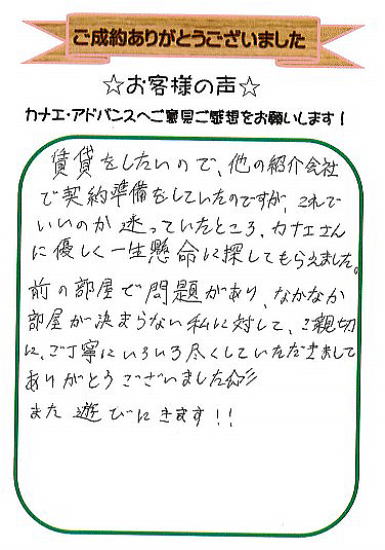 ご成約ありがとうございました
☆お客様の声☆
カナエ・アドバンスへご意見ご感想をお願いします！
賃貸をしたいので、他の紹介会社
で契約準備をしていたのですが、これで
いいのか迷っていたところ、カナエさん
に優しく一生懸命に探してもらえました。
前の部屋で問題があり、なかなか
部屋が決まらない私に対して、ご親切
に、ご丁寧にいろいろ尽くしていただきまして
ありがとうございました
また遊びにきます！！